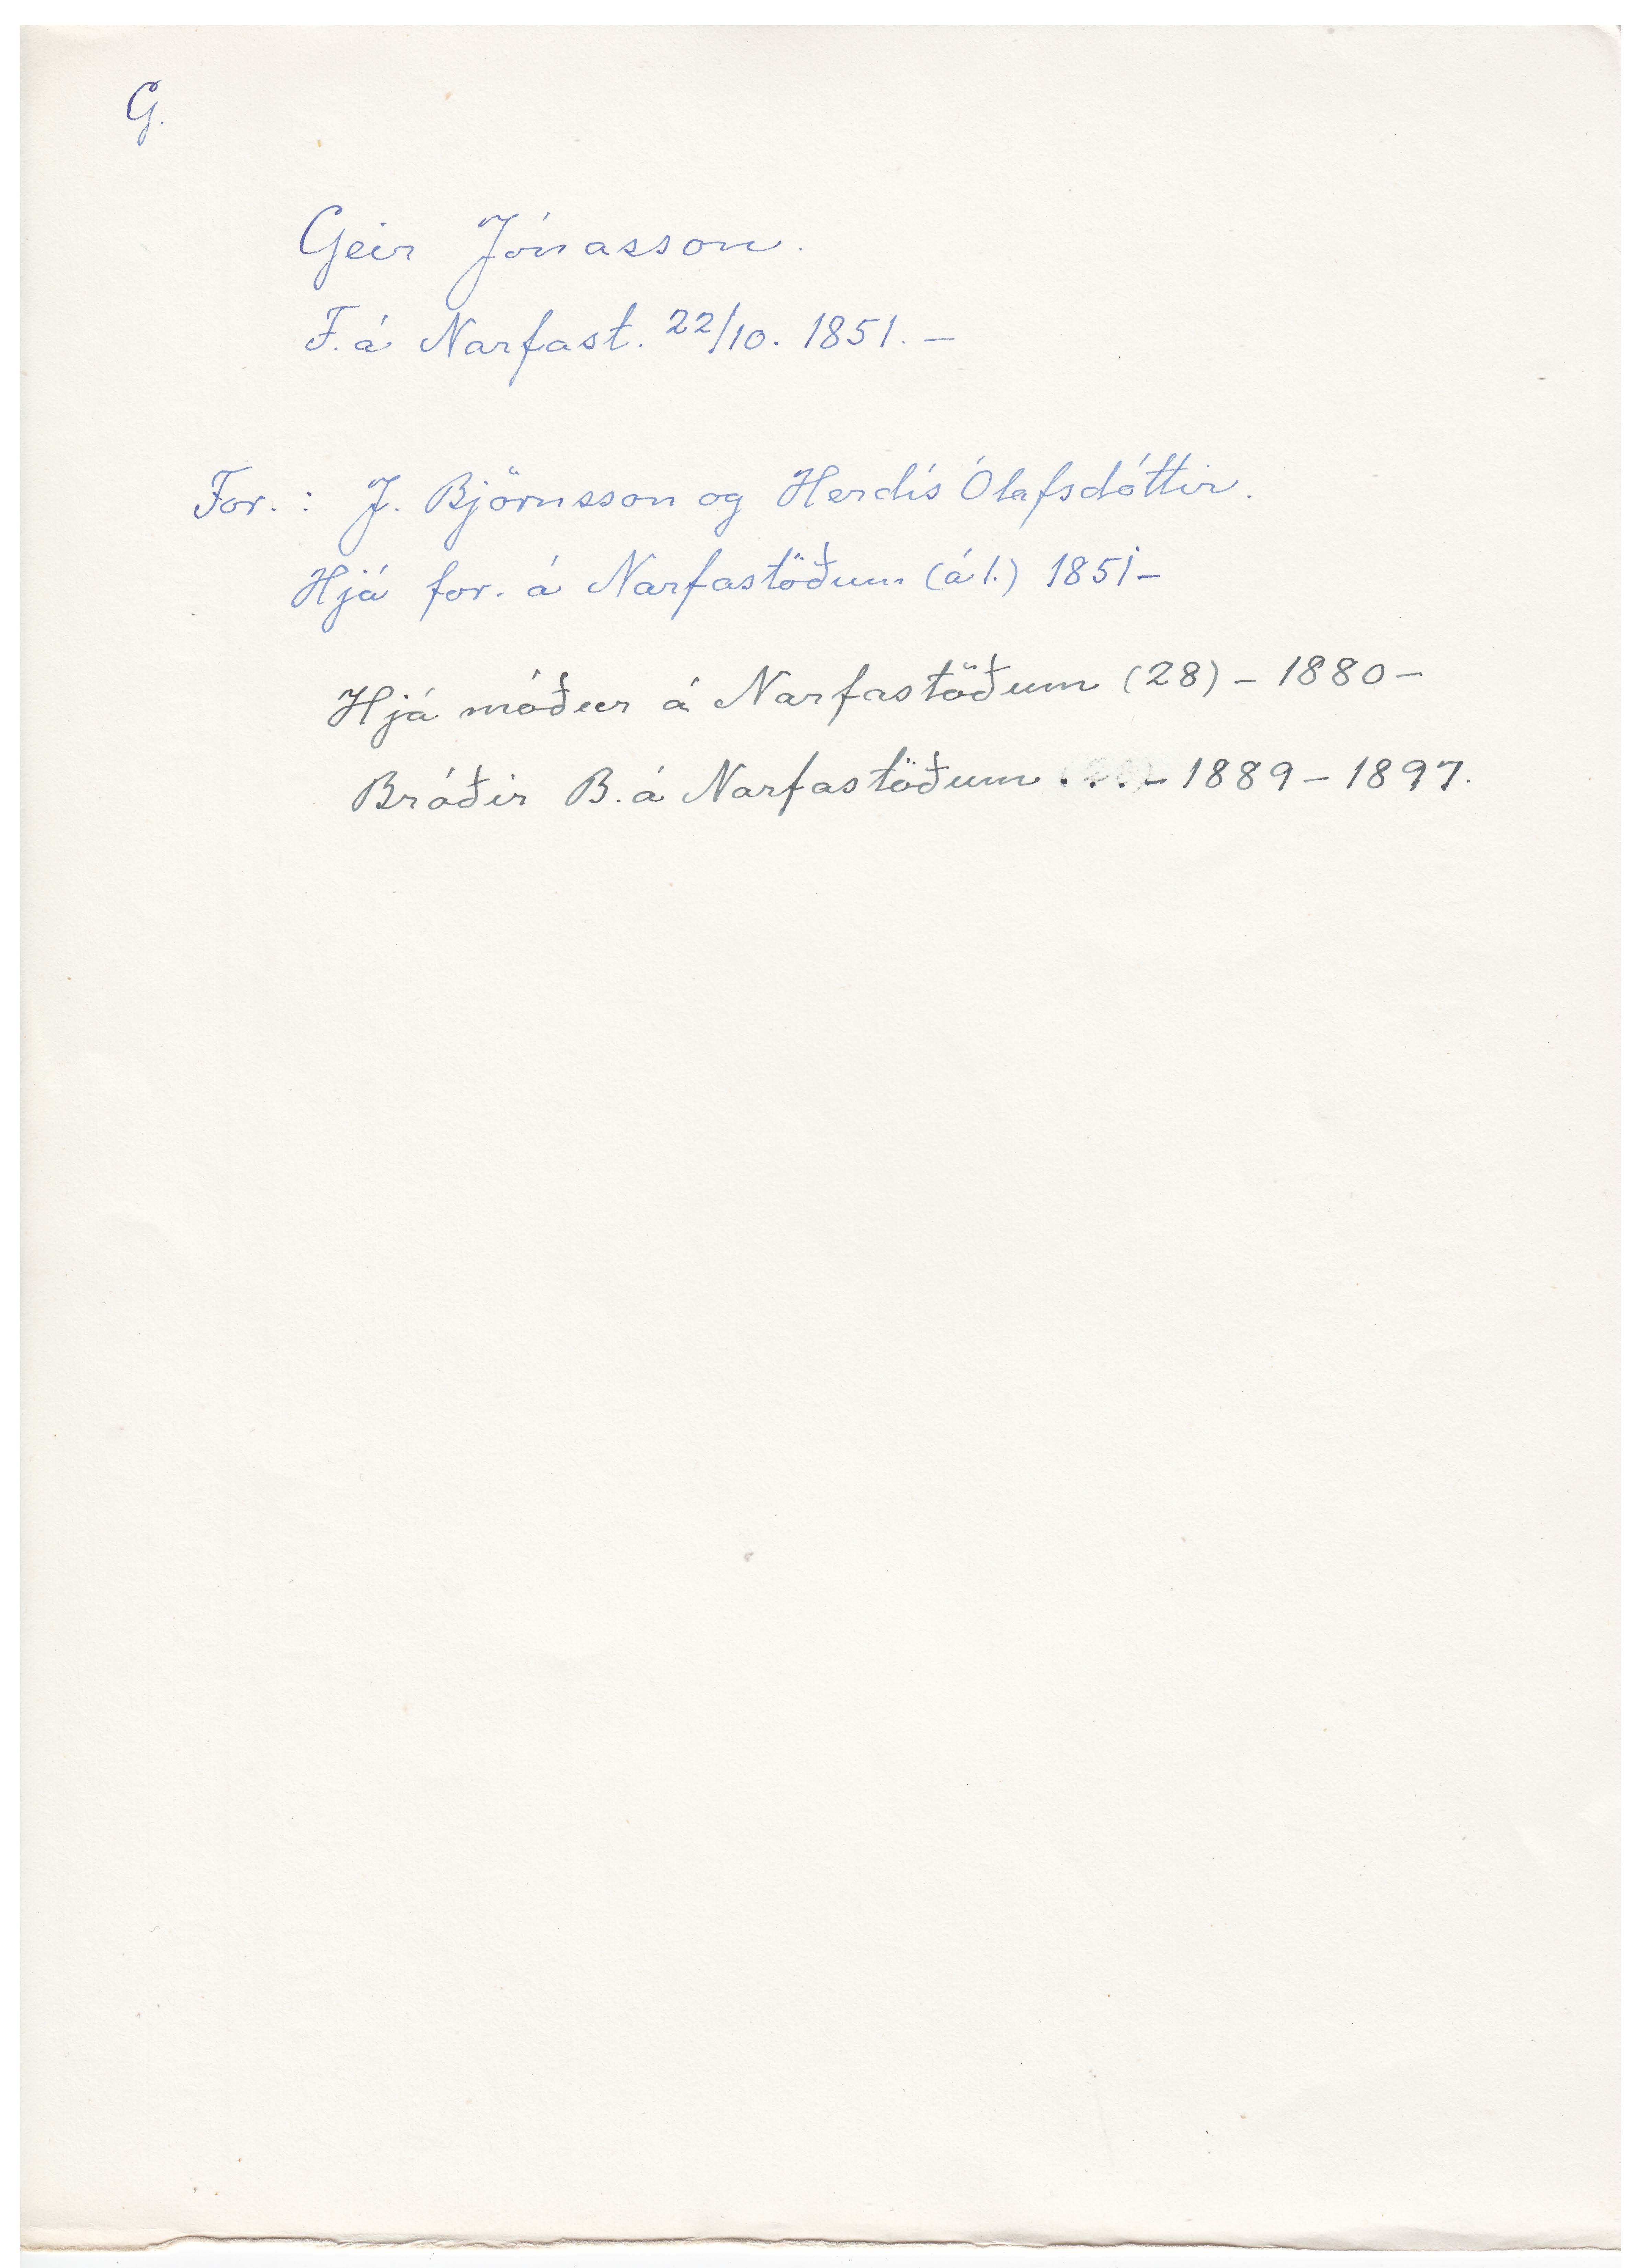 G.
Geir Jónasson.
F. á Narfast. 22/10. 1851. –
For. : J. Björnsson og Herdís Ólafsdóttir.
Hjá for. á Narfastöðum (á 1.) 1851 –
Hjá móður á Narfastöðum (28) – 1880 –
Bróðir B. á Narfastöðum . . . – 1889 – 1897.